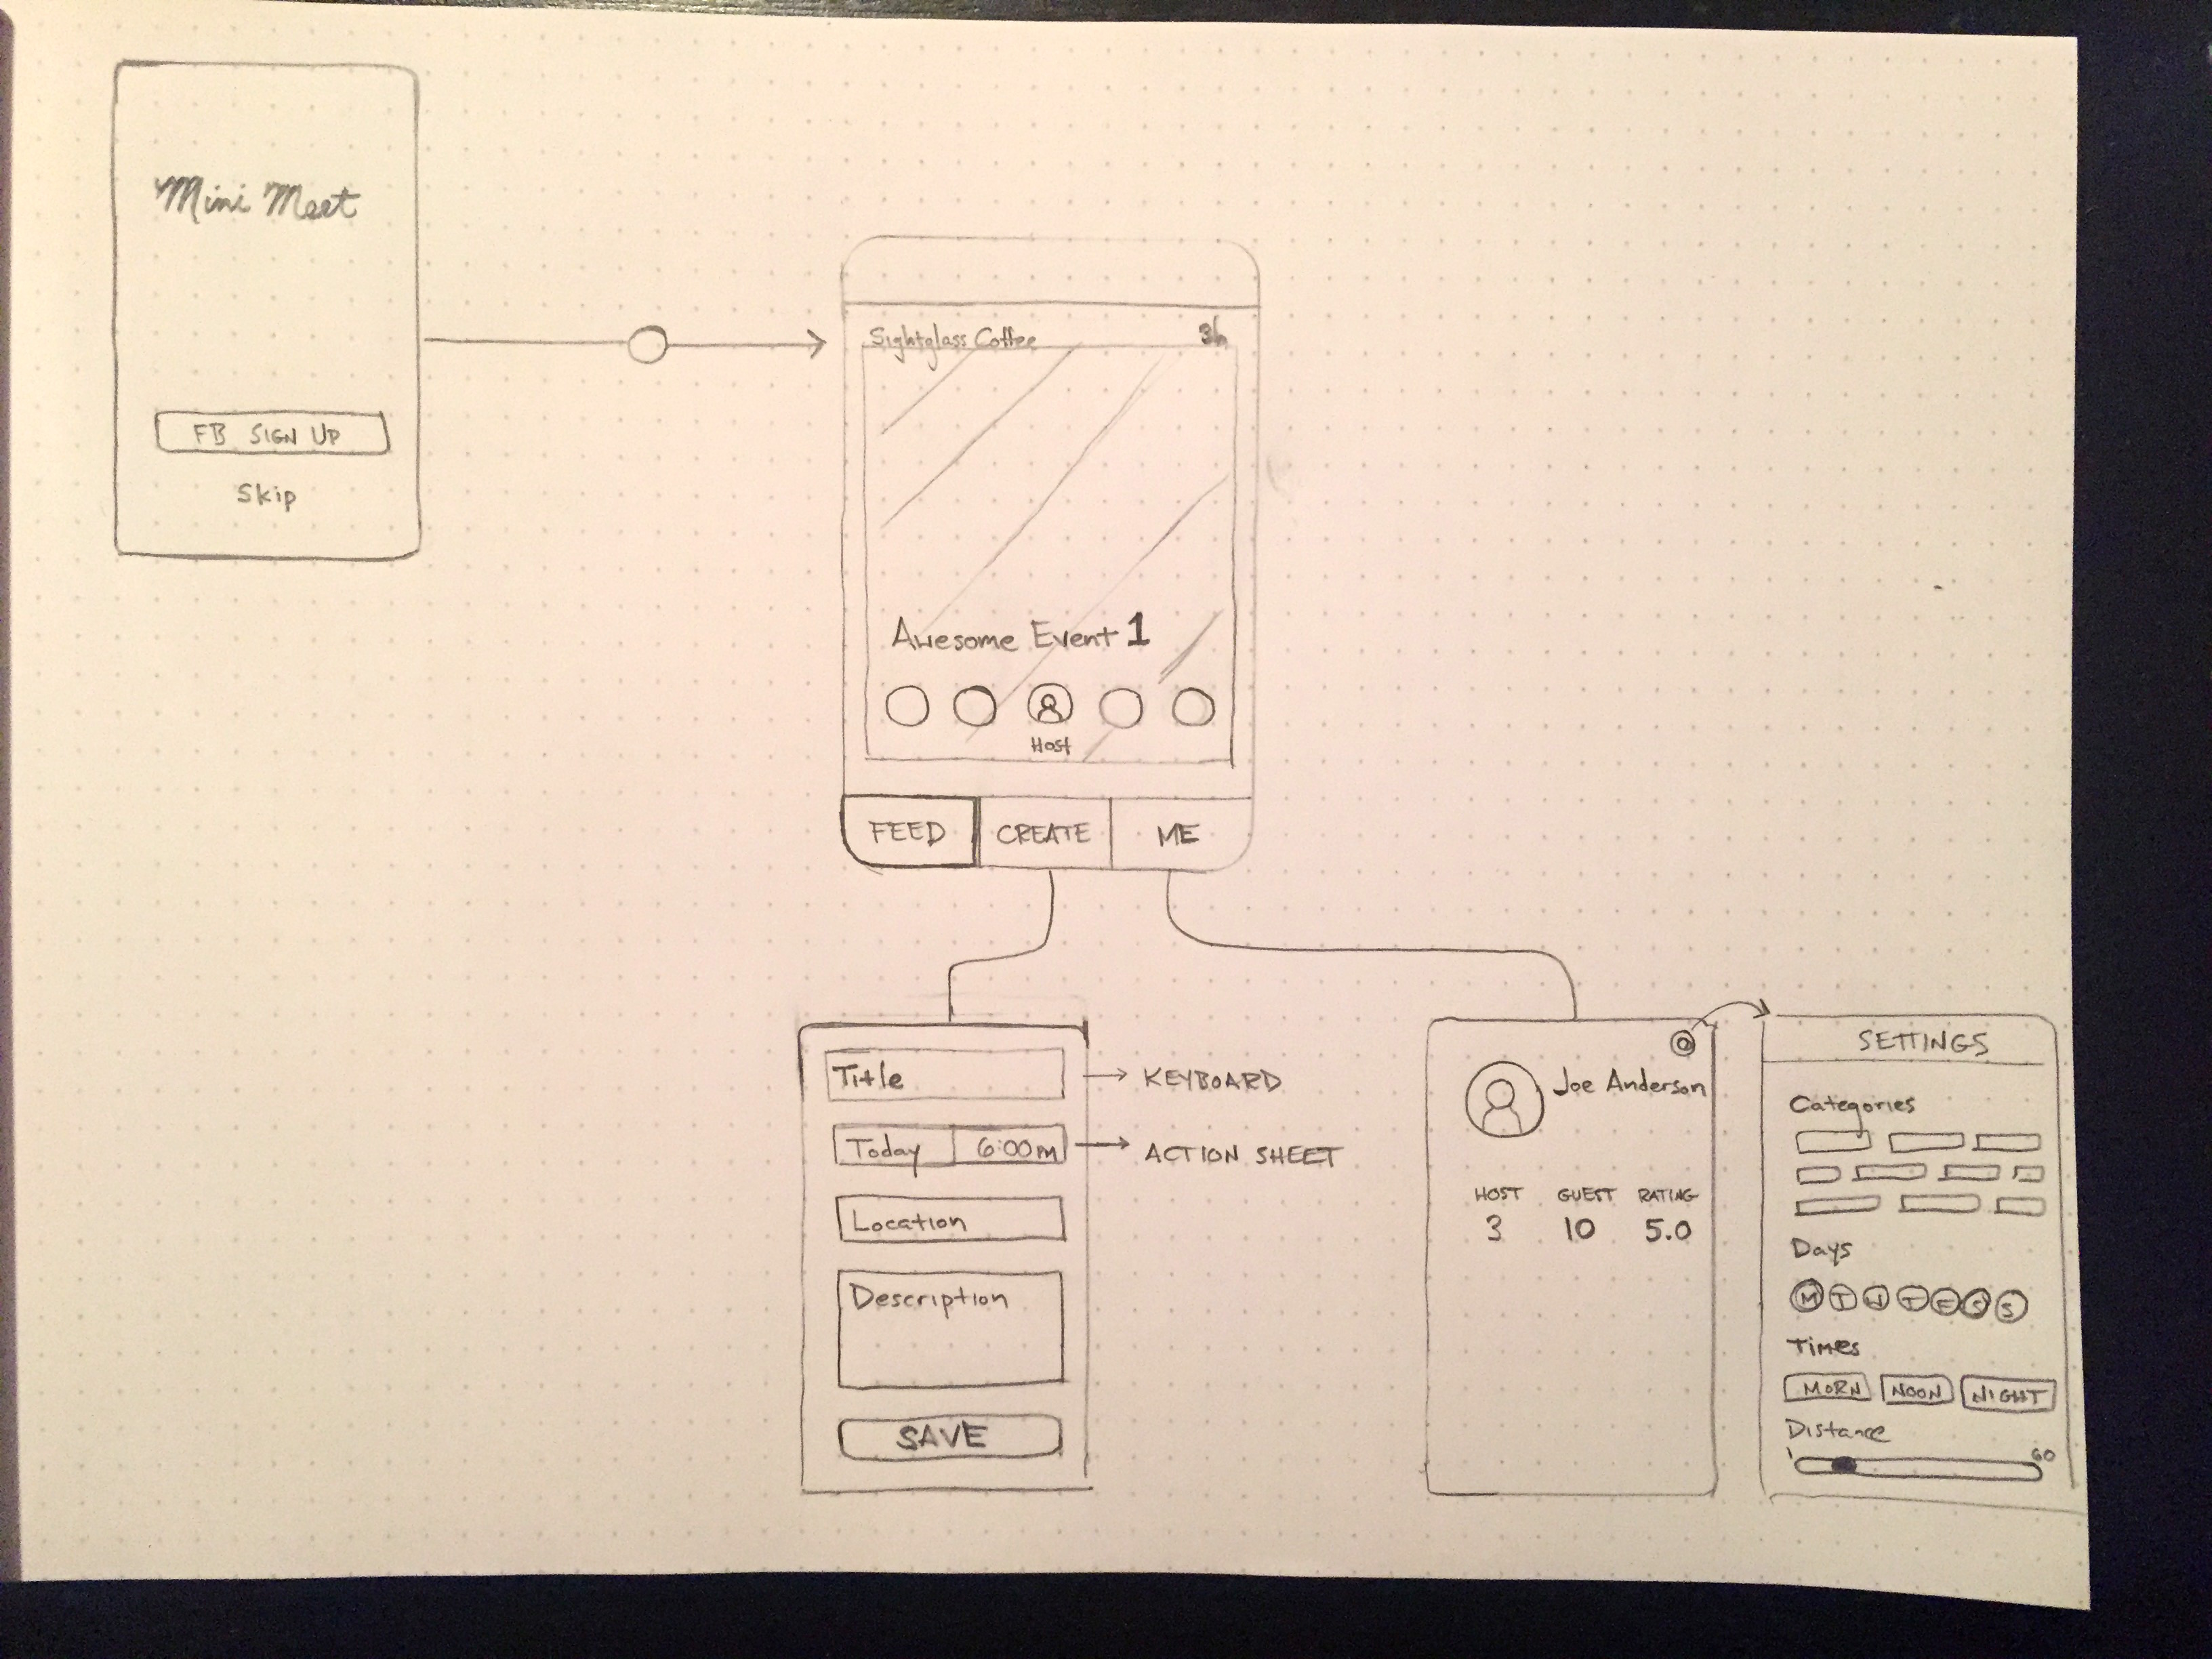 Mini Meet
FB SIGN UP
Skip
Sightglass Coffee 3h
Awesome Event 1
Host
FEED CREATE ME
Title
KEYBOARD
Today 6:00PM
ACTION SHEET
Location
Description
SAVE
Joe Anderson
HOST GUEST RATING
3 10 5.0
SETTINGS
Categories
Days
M T W T F S S
Times
MORN NOON NIGHT
Distance
1 60